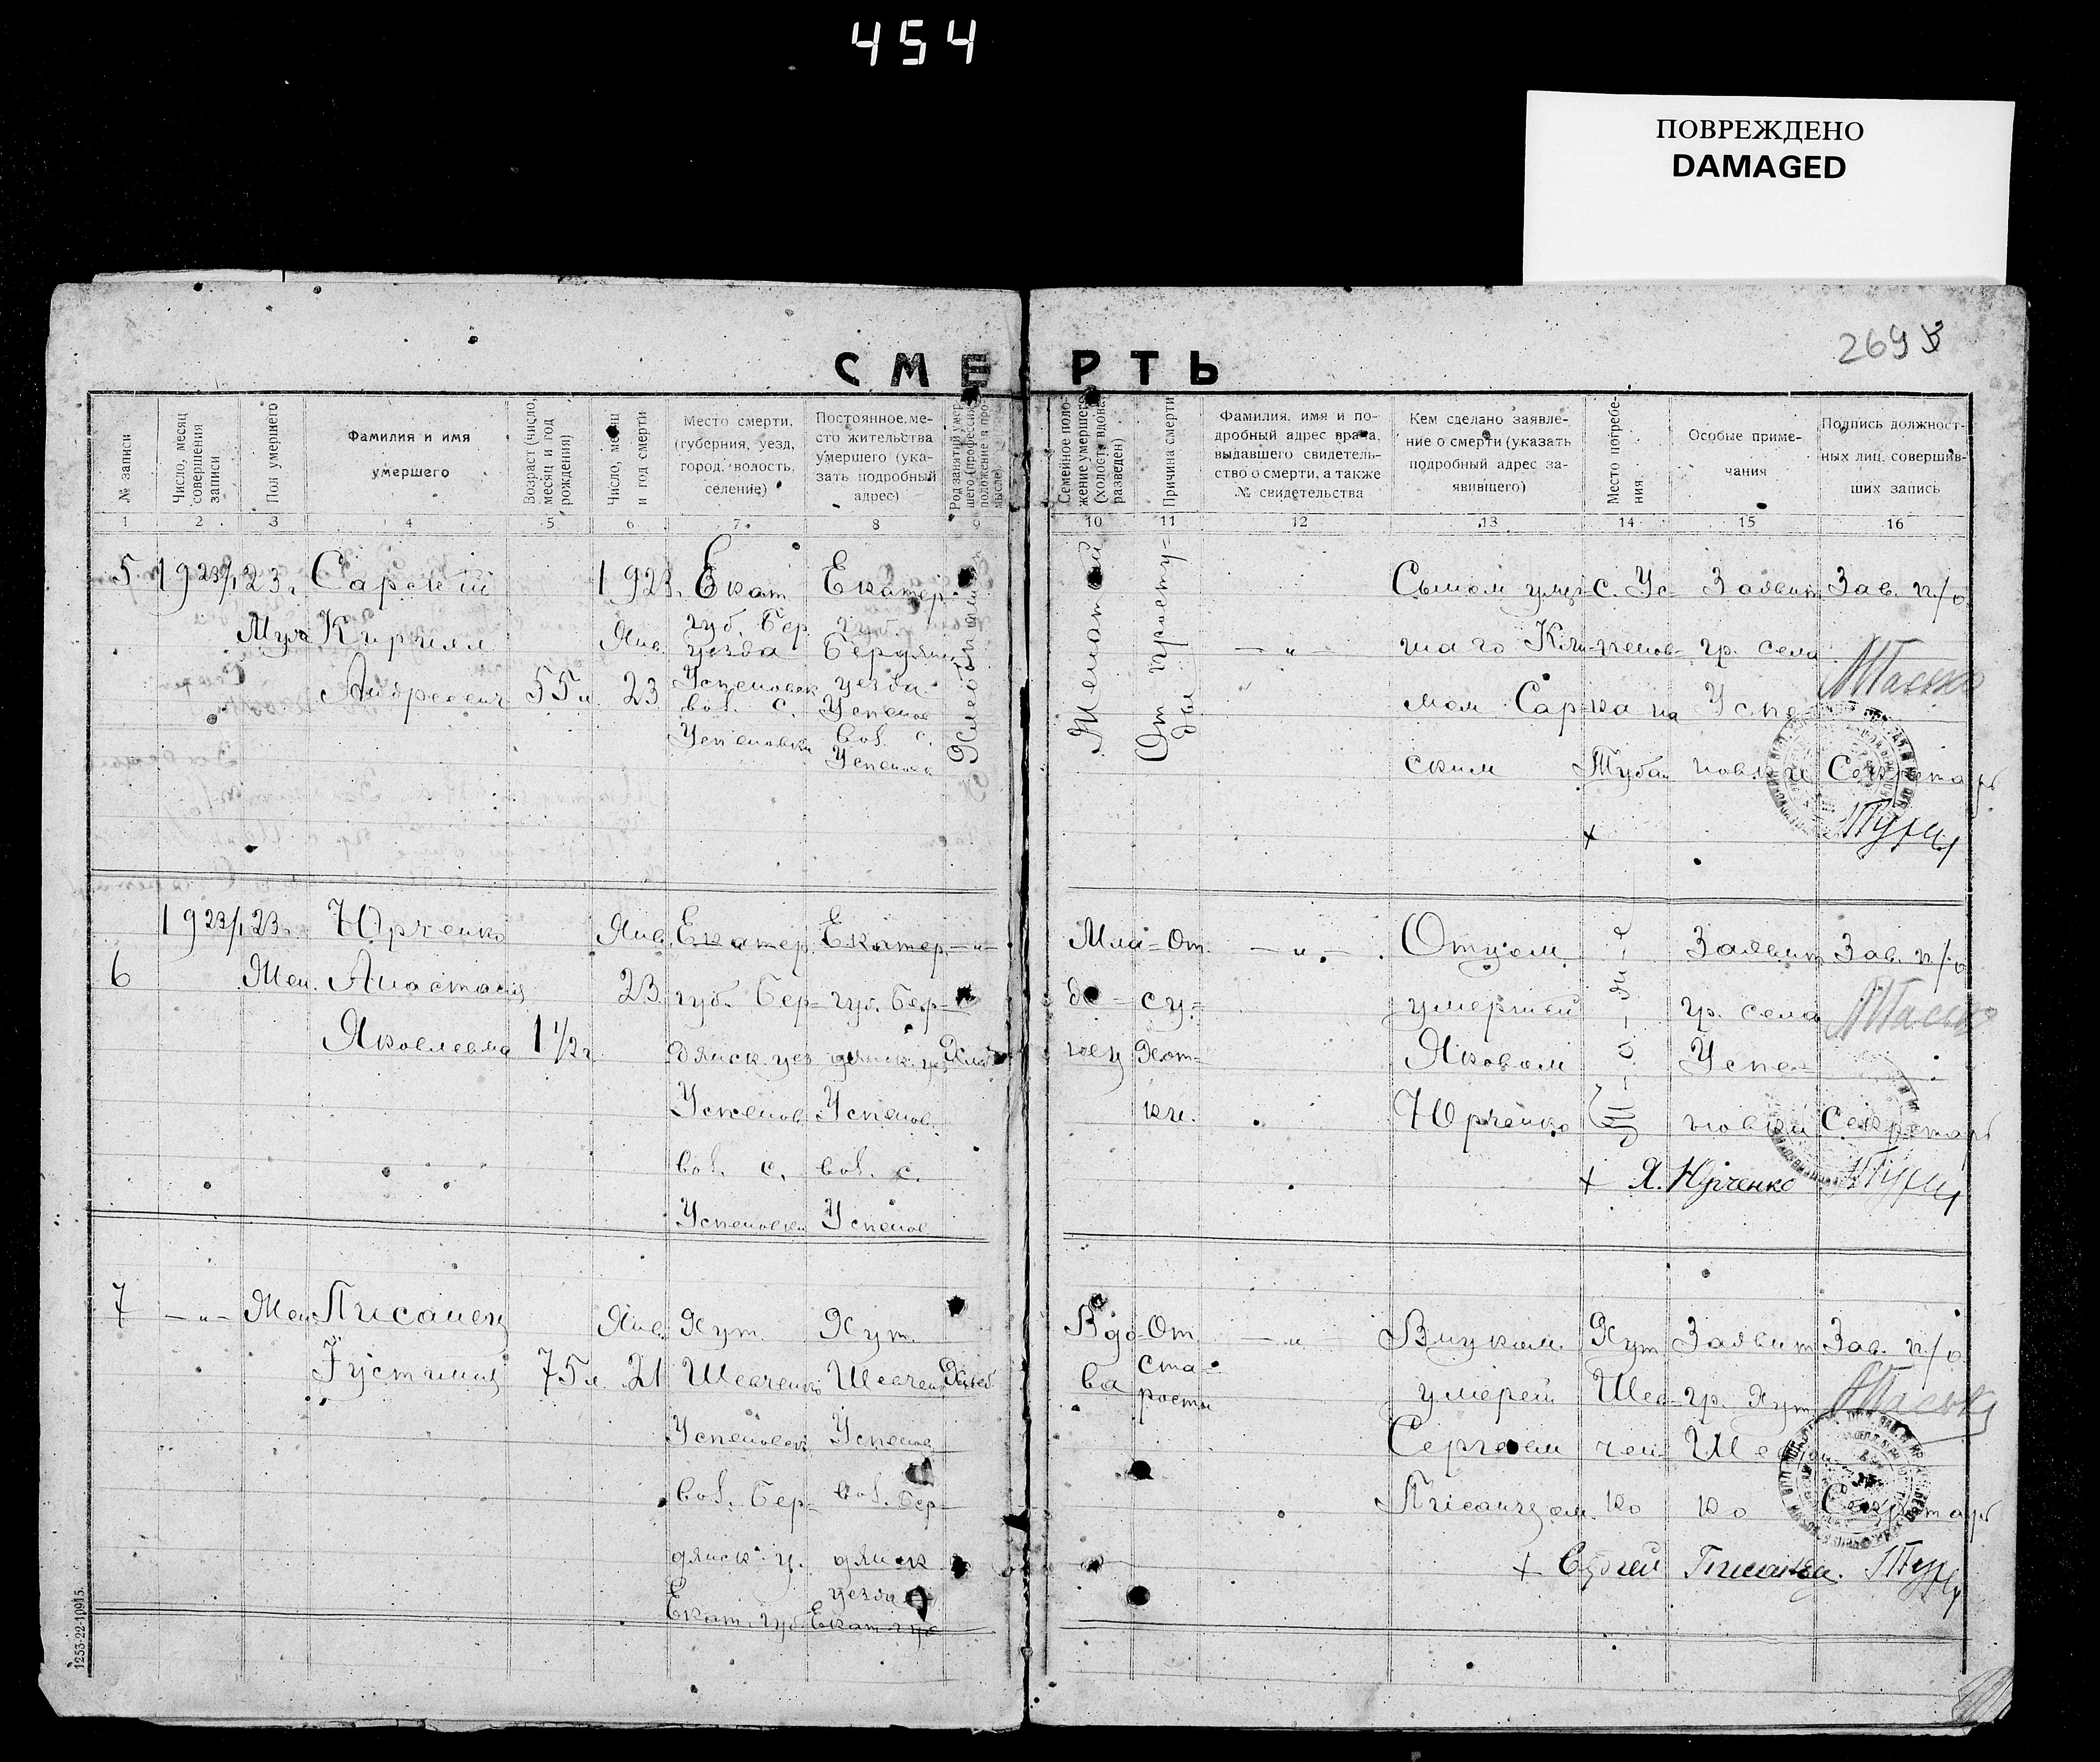 454
ПОВРЕЖДЕНО
DAMAGED
СМЕРТЬ
№ записи
Число, месяц совершения записи
Пол умершего
Фамилия и имя
умершего
Возраст (число, месяц и год рождения)
Число, месяц и год смерти
Место смерти,
(губерния, уезд,
город, волость,
селение)
Постоянное ме-
сто жительства
умершего (ука-
зать подробный
адрес)
Семейное поло-
жение умершего
(холост, вдова,
разведен)
Причина смерти
Фамилия, имя и по-
дробный адрес врача,
выдавшего свидетель-
ство о смерти, а также
№ свидетельства
Кем сделано заявле-
ние о смерти (указать
подробный адрес за-
явившего)
Место погребе-
ния.
Особые приме-
чания
Подпись должност-
ных лиц, совершив-
ших запись
1 2 3 4 5 6 7 8 9 10 11 12 13 14 15 16
5
Муж
Кирилл
Андреевич
55 л.
1923.
Янв.
23
Екат
губ. Бер.
уезда
Успеновск
вол. с.
Успеновки
Екатер.
губ.
Бердян.
уезда
Успенов
вол. с.
Успенов
Женатый
От просту-
ды
Сыном умер-
шаго
Сар-
ским
с. Ус-
пенов-
ка на
Заявит
гр. села
Успе-
новки
Зав. п/о
Секретарь
6
Жен.
Юрченко
Анастасия
Яковлевна
1 1/2 г.
Янв.
23
Екатер.
губ. Бер-
дянск. уез
Успенов.
вол. с.
Успеновки
Екатер.
губ. Бер-
дянск. уез
Успенов.
вол. с.
Успенов
Мла-
де-
нец
От
су-
хот-
ки.
Отцом
умершей
Яковом
Юрченко
То-же
Заявит
гр. села
Успе-
новки
Я. Юрченко
Зав. п/о
Секретарь
7
Жен
Писанец
Устиния
75 л.
Янв.
21
Хут.
Шевченко
Успеновск
вол. Бер-
дянск. у.
Екат. губ.
Хут.
Шевчен
Успенов
вол. Бер-
дянск
уезда
Екат губ
Хлеб
Вдо-
ва
От
ста-
рости
Внуком
умершей
Сергеем
Писанцем
Хут
Шев-
чен-
ко
Заявит
гр. Хут
Шевчен
ко
Сергей Писанец
Зав. п/о
Секретарь
1253-22-10915.